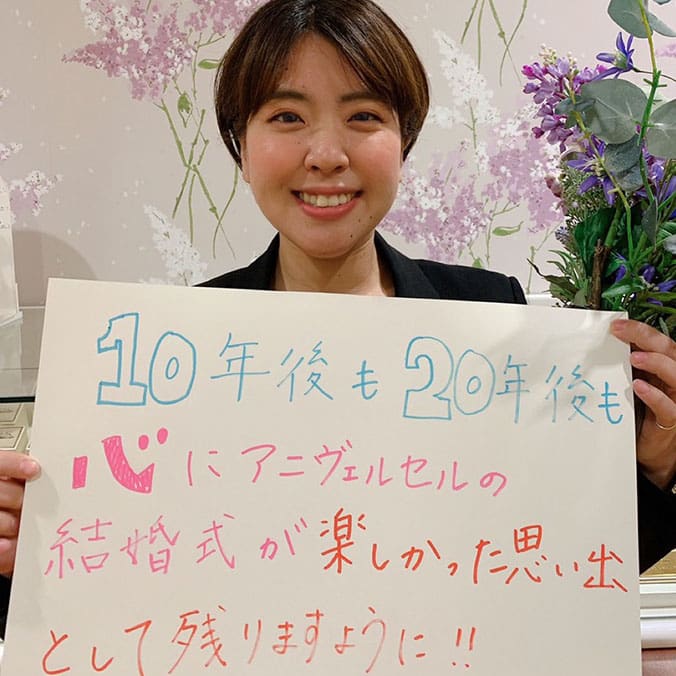 10年後も20年後も
心にアニヴェルセルの
結婚式が楽しかった思い出
として残りますように!!